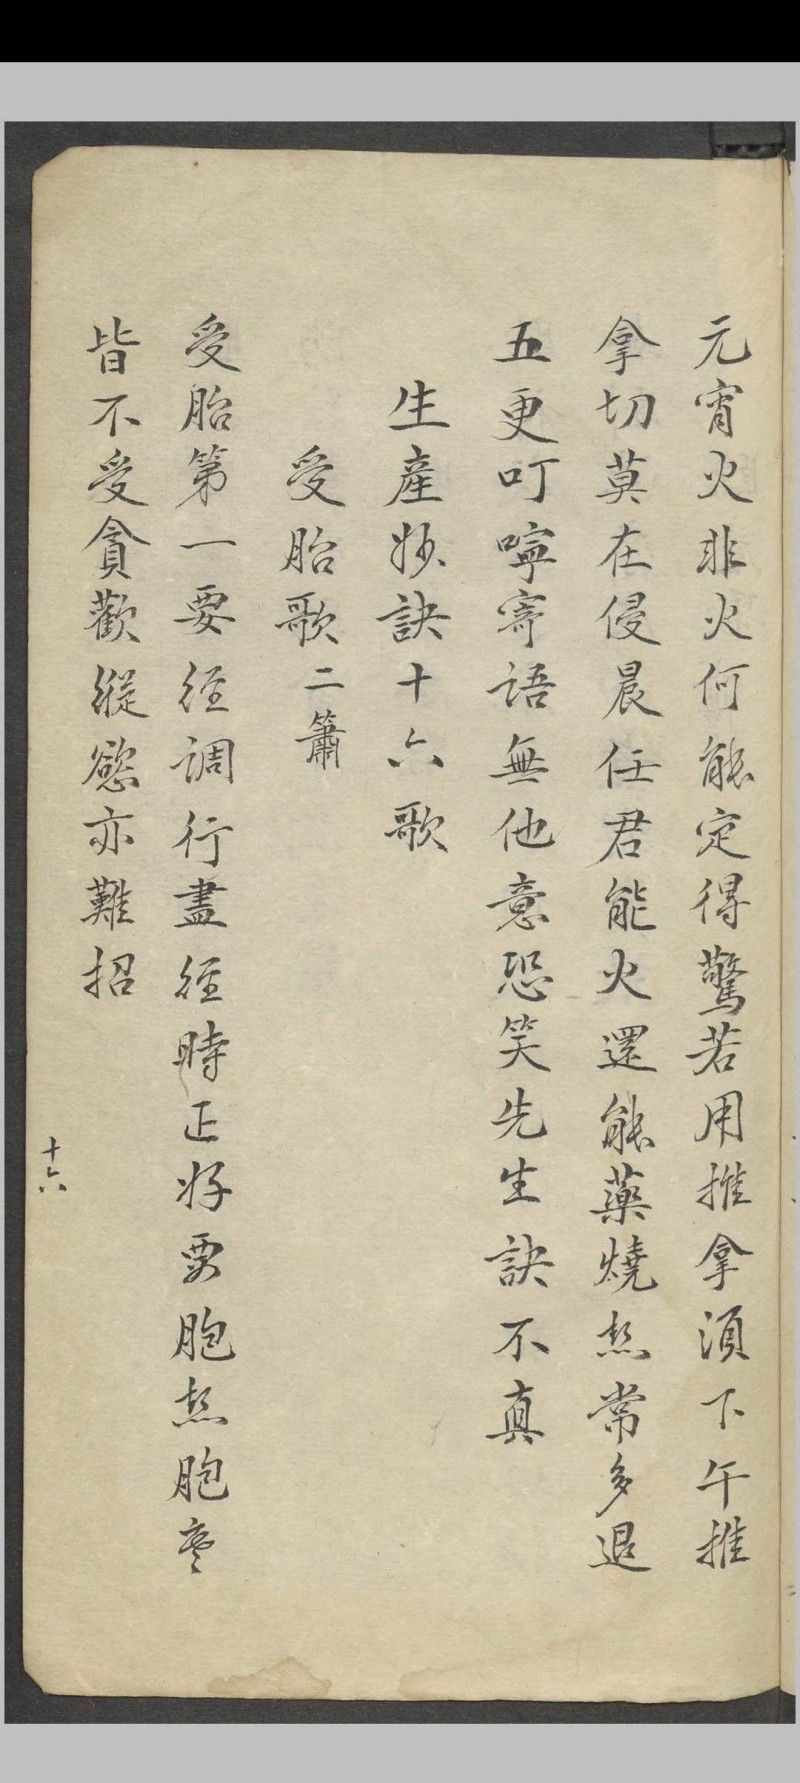 元宵火非火何能定得驚若用推拿須下午推
拿切莫在侵晨任君能火還能藥燒熱常多退
五更叮嚀寄語無他意恐笑先生訣不真
生產妙訣十六歌
受胎歌二簫
受胎第一要經調行盡經時正好要胞熱胞寒
皆不受貪歡縱慾亦難招
十六